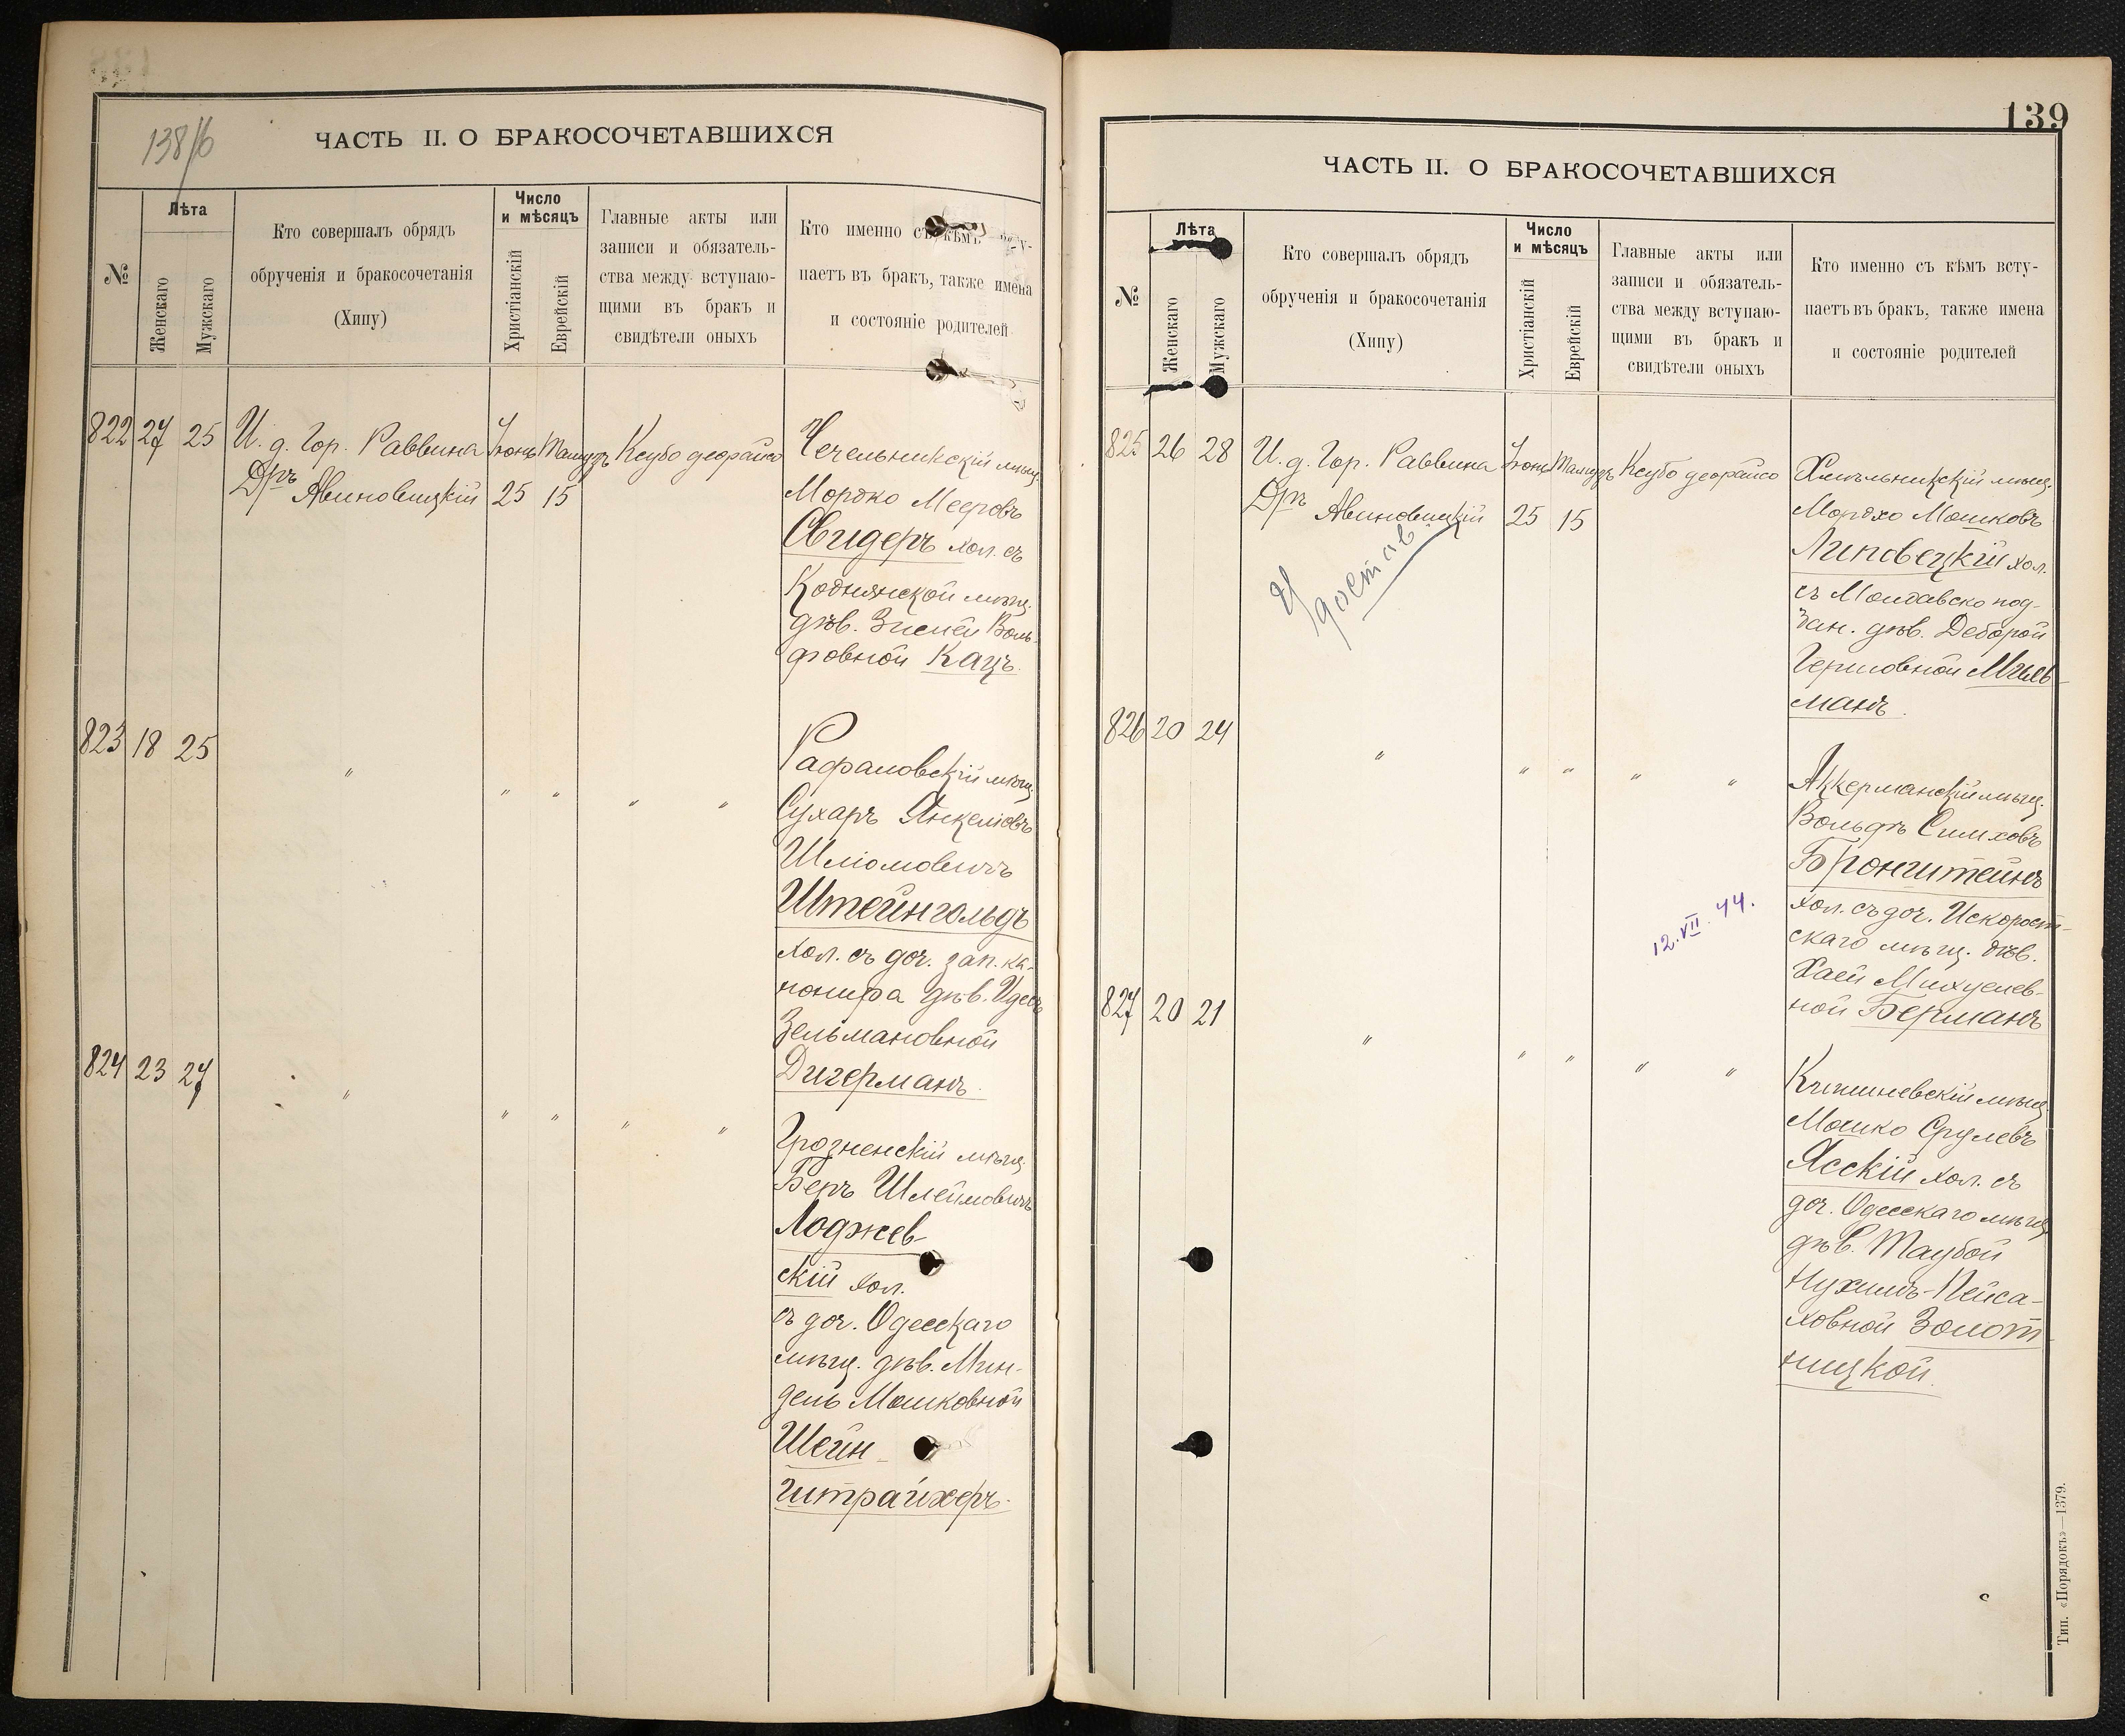 138/б
ЧАСТЬ II. О БРАКОСОЧЕТАВШИХСЯ
№
Лѣта
Женскаго
Мужскаго
Кто совершалъ обрядъ
обрученія и бракосочетанія
(Хипу)
Число
и мѣсяцъ
Христіанскій
Еврейскій
Главные акты или
записи и обязатель-
ства между вступаю-
щими въ бракъ и
свидѣтели оныхъ
Кто именно съ кѣмъ
паетъ въ бракъ, также имена
и состояніе родителей
822 27 25 И. д. Гор. Раввина Іюнь Тамузъ Ксубо деорайсо
Дръ Авиновицкій 25 15
Чечельникскій мѣщ.
Мордко Мееровъ
Свидеръ хол. съ
Коднянской мѣщ.
дѣв. Зисей Воль-
фовной Кацъ.
823 18 25 " " " " "
Рафаловскій мѣщ.
Сухаръ Янкеліовъ
Шліомовичъ
Штейнгольдъ
хол. съ доч. зап. ка-
нонира дѣв. Идесъ
Зельмановной
Дигерманъ.
824 23 27 " " " " "
Грозненскій мѣщ.
Беръ Шлеймовичъ
Лоджев-
скій хол.
съ доч. Одесскаго
мѣщ. дѣв. Мин-
дель Мошковной
Шейн-
штрайхеръ.
139
ЧАСТЬ II. О БРАКОСОЧЕТАВШИХСЯ
№
Лѣта
Женскаго
Мужскаго
Кто совершалъ обрядъ
обрученія и бракосочетанія
(Хипу)
Число
и мѣсяцъ
Христіанскій
Еврейскій
Главные акты или
записи и обязатель-
ства между вступаю-
щими въ бракъ и
свидѣтели оныхъ
Кто именно съ кѣмъ всту-
паетъ въ бракъ, также имена
и состояніе родителей
825 26 28 И. д. Гор. Раввина Іюнь Тамузъ Ксубо деорайсо
Дръ Авиновицкій 25 15
Хмѣльникскій мѣщ.
Мордко Мошковъ
Липовецкій хол.
съ Молдавско под-
дан. дѣв. Деборой
Гершовной Мгиль-
манъ.
826 20 24 " " " " "
Аккерманскій мѣщ.
Вольфъ Симховъ
Бронштейнъ
хол. съ доч. Искорост-
скаго мѣщ. дѣв.
Хаей Михуелев-
ной Берманъ
12.VII.44.
827 20 21 " " " " "
Кишиневскій мѣщ.
Мошко Срулевъ
Ясскій хол. съ
доч. Одесскаго мѣщ.
дѣв. Таубой
Нухимъ-Пейса-
ховной Золот-
ницкой.
Тип. «Порядокъ»—1379.